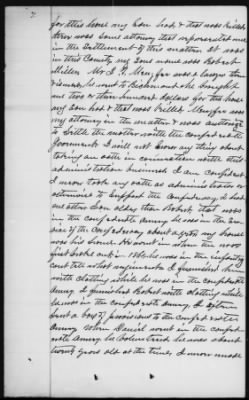 for this horse my son had & that was killed
there was some attorney that represented me
in the settlement of this matter it was
in this County my sons name was Robert
Miller Mr J. P. was a lawyer then
& he went to Richmond & he brought
me two or three hundred dollars for the horse
my son had & that was killed was
my attorney in the matter & was authorized
to settle the matter with the confederate
Government I will not know any thing about
taking an oath in connection with this
administration business I am confident
I never took any oath as administrator or
otherwise to support the confederacy I had
one other son older than Robert that was
in the confederate army he was in the ser-
vice of the Confederacy about a year my
was his horse He went in when the war
first broke out in . While he was in the infantry
can't tell what regiment I furnished him
with clothing while he was in the confederate
Army I furnished Robert with clothing while
he was in the confederate army I often
sent a box of provisions to the confederate
Army When Daniel went in the confed-
erate army he volunteered he was about
twenty years old at the time, I never made